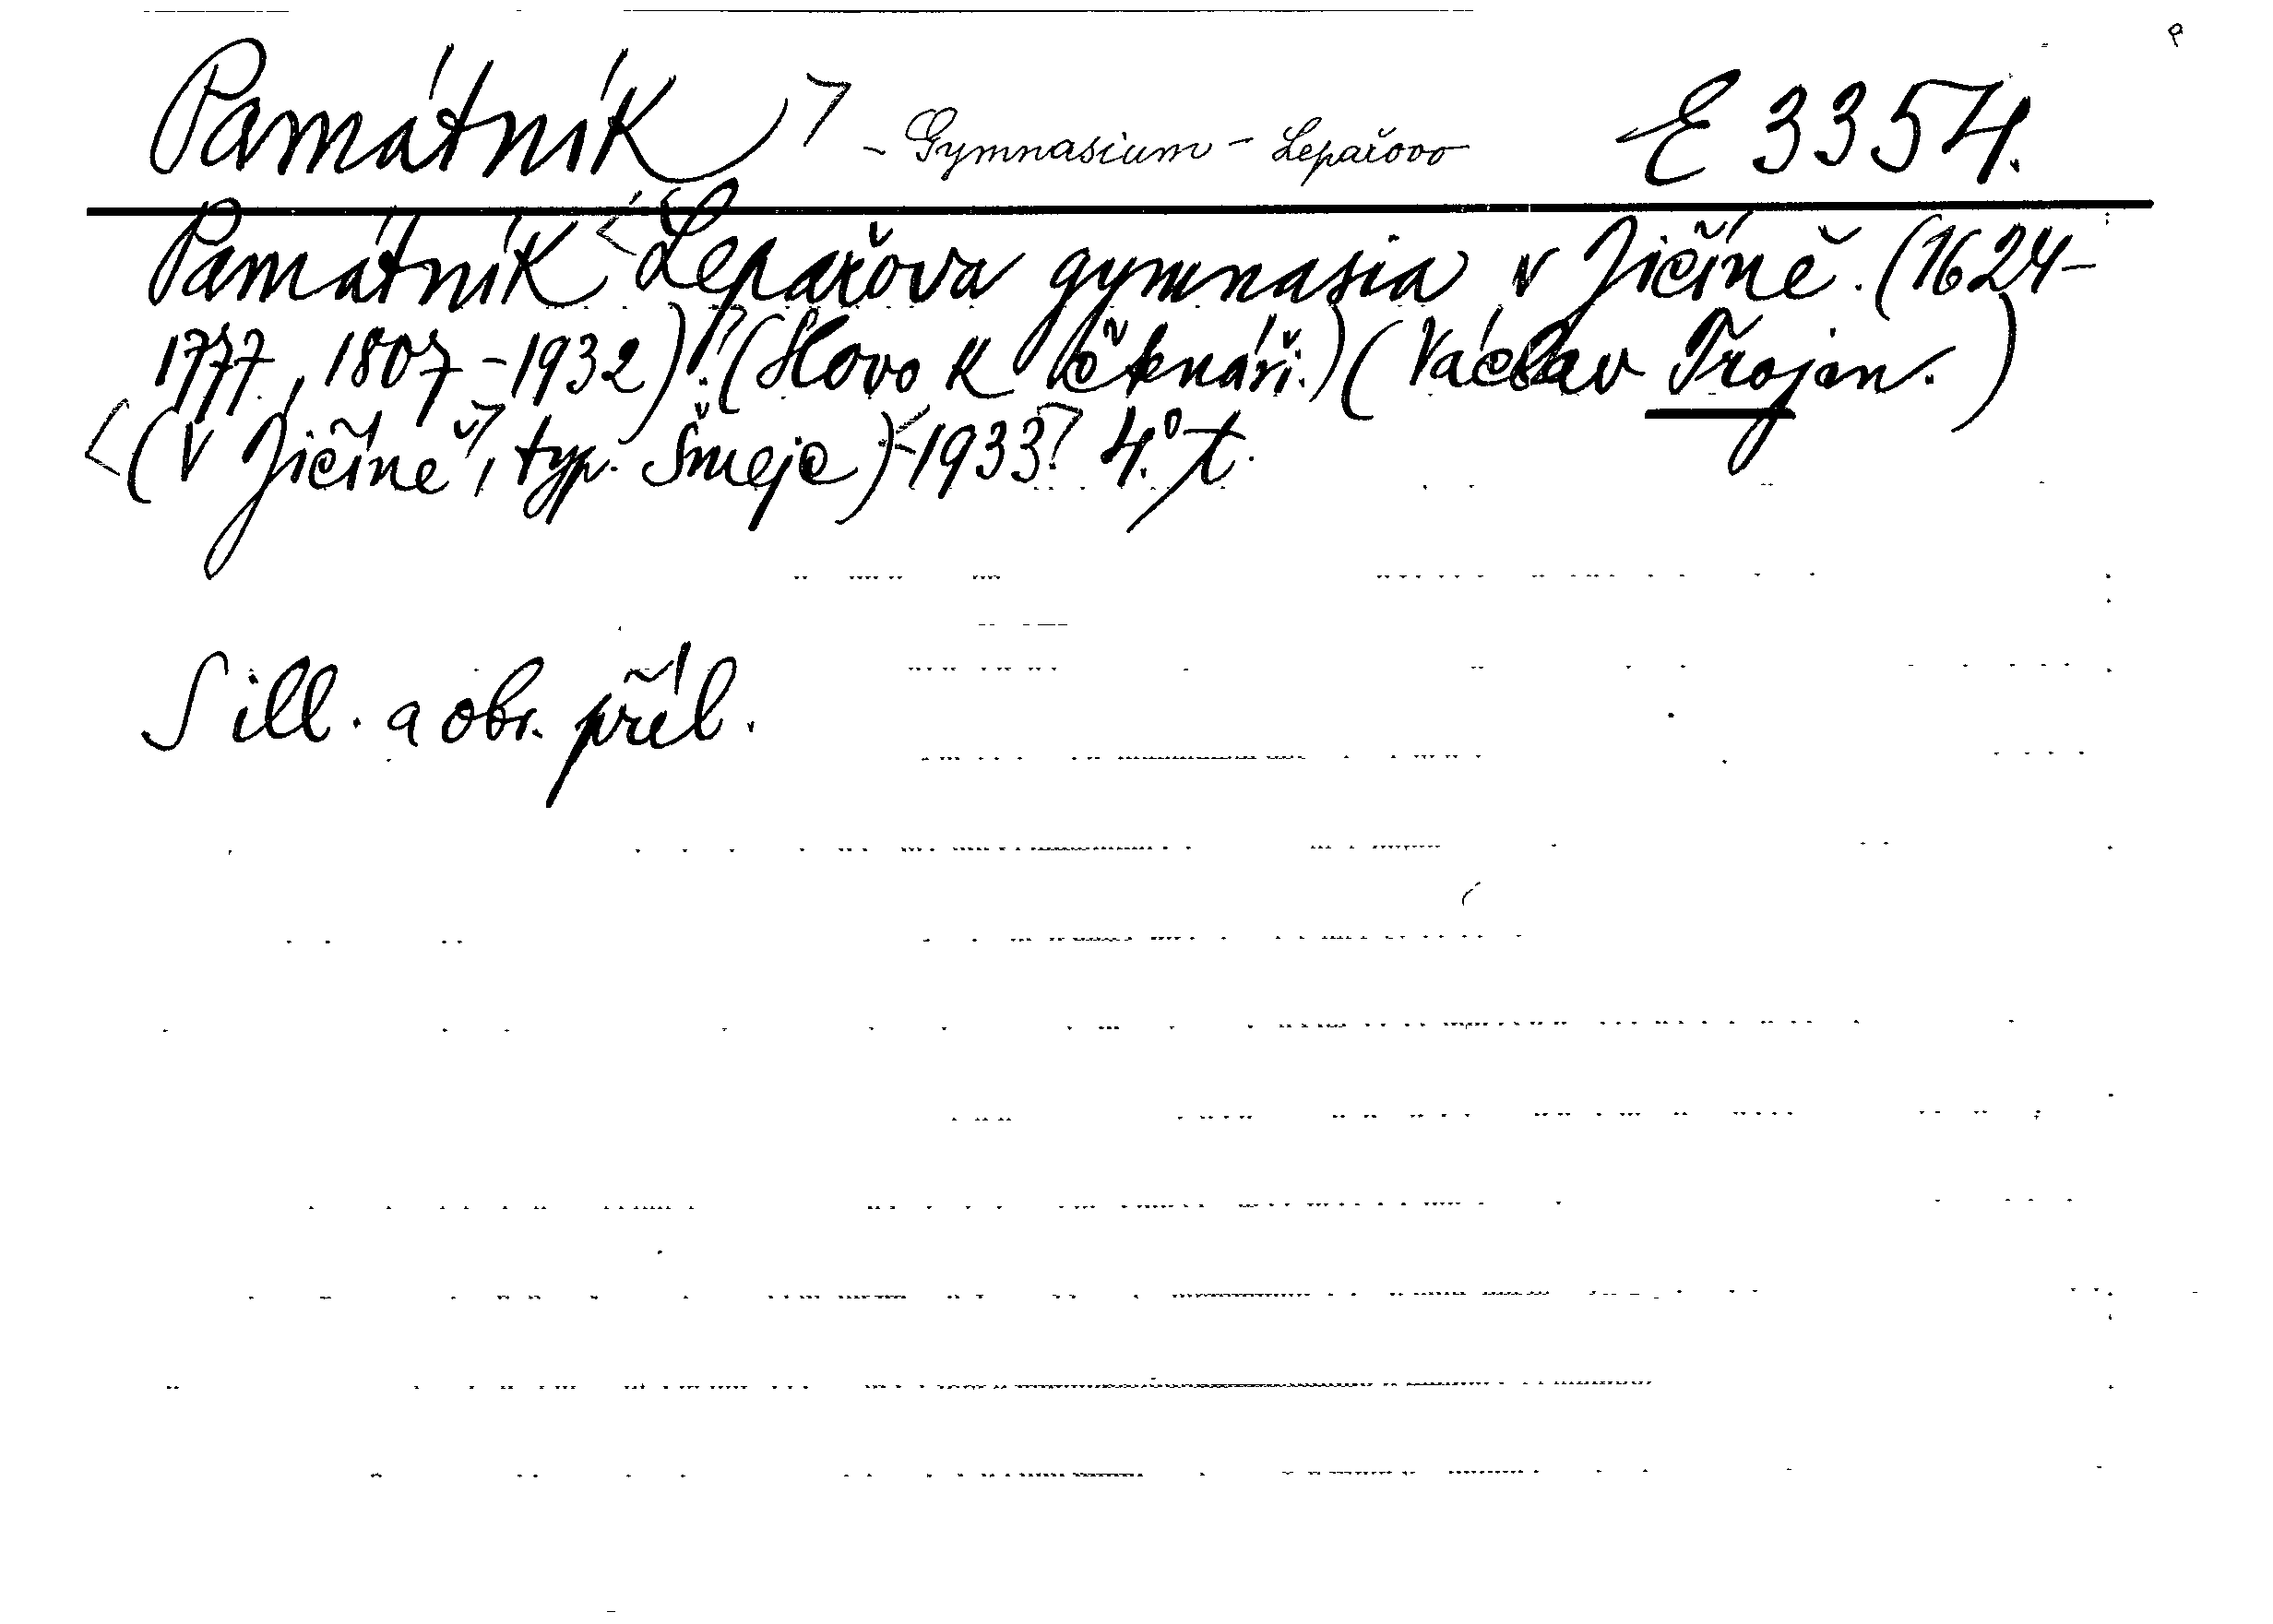 Památník - Gymnasium - Lepařovo E 3354.
Památník Lepařova gymnasia v Jičíně. (1624-
1777, 1807-1932). (Slovo k čtenáři.) (Václav Trojan.)
(V Jičíně, typ. Šmejc) 1933. 4.° t.
S ill. a obr. příl.